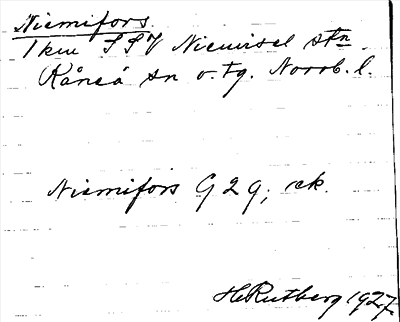 Niemifors.
1 km SSV Niemisel stn.
Råneå sn o. tg. Norrb. l.
Niemifors G 2 g; rk.
H Rutberg 1927.